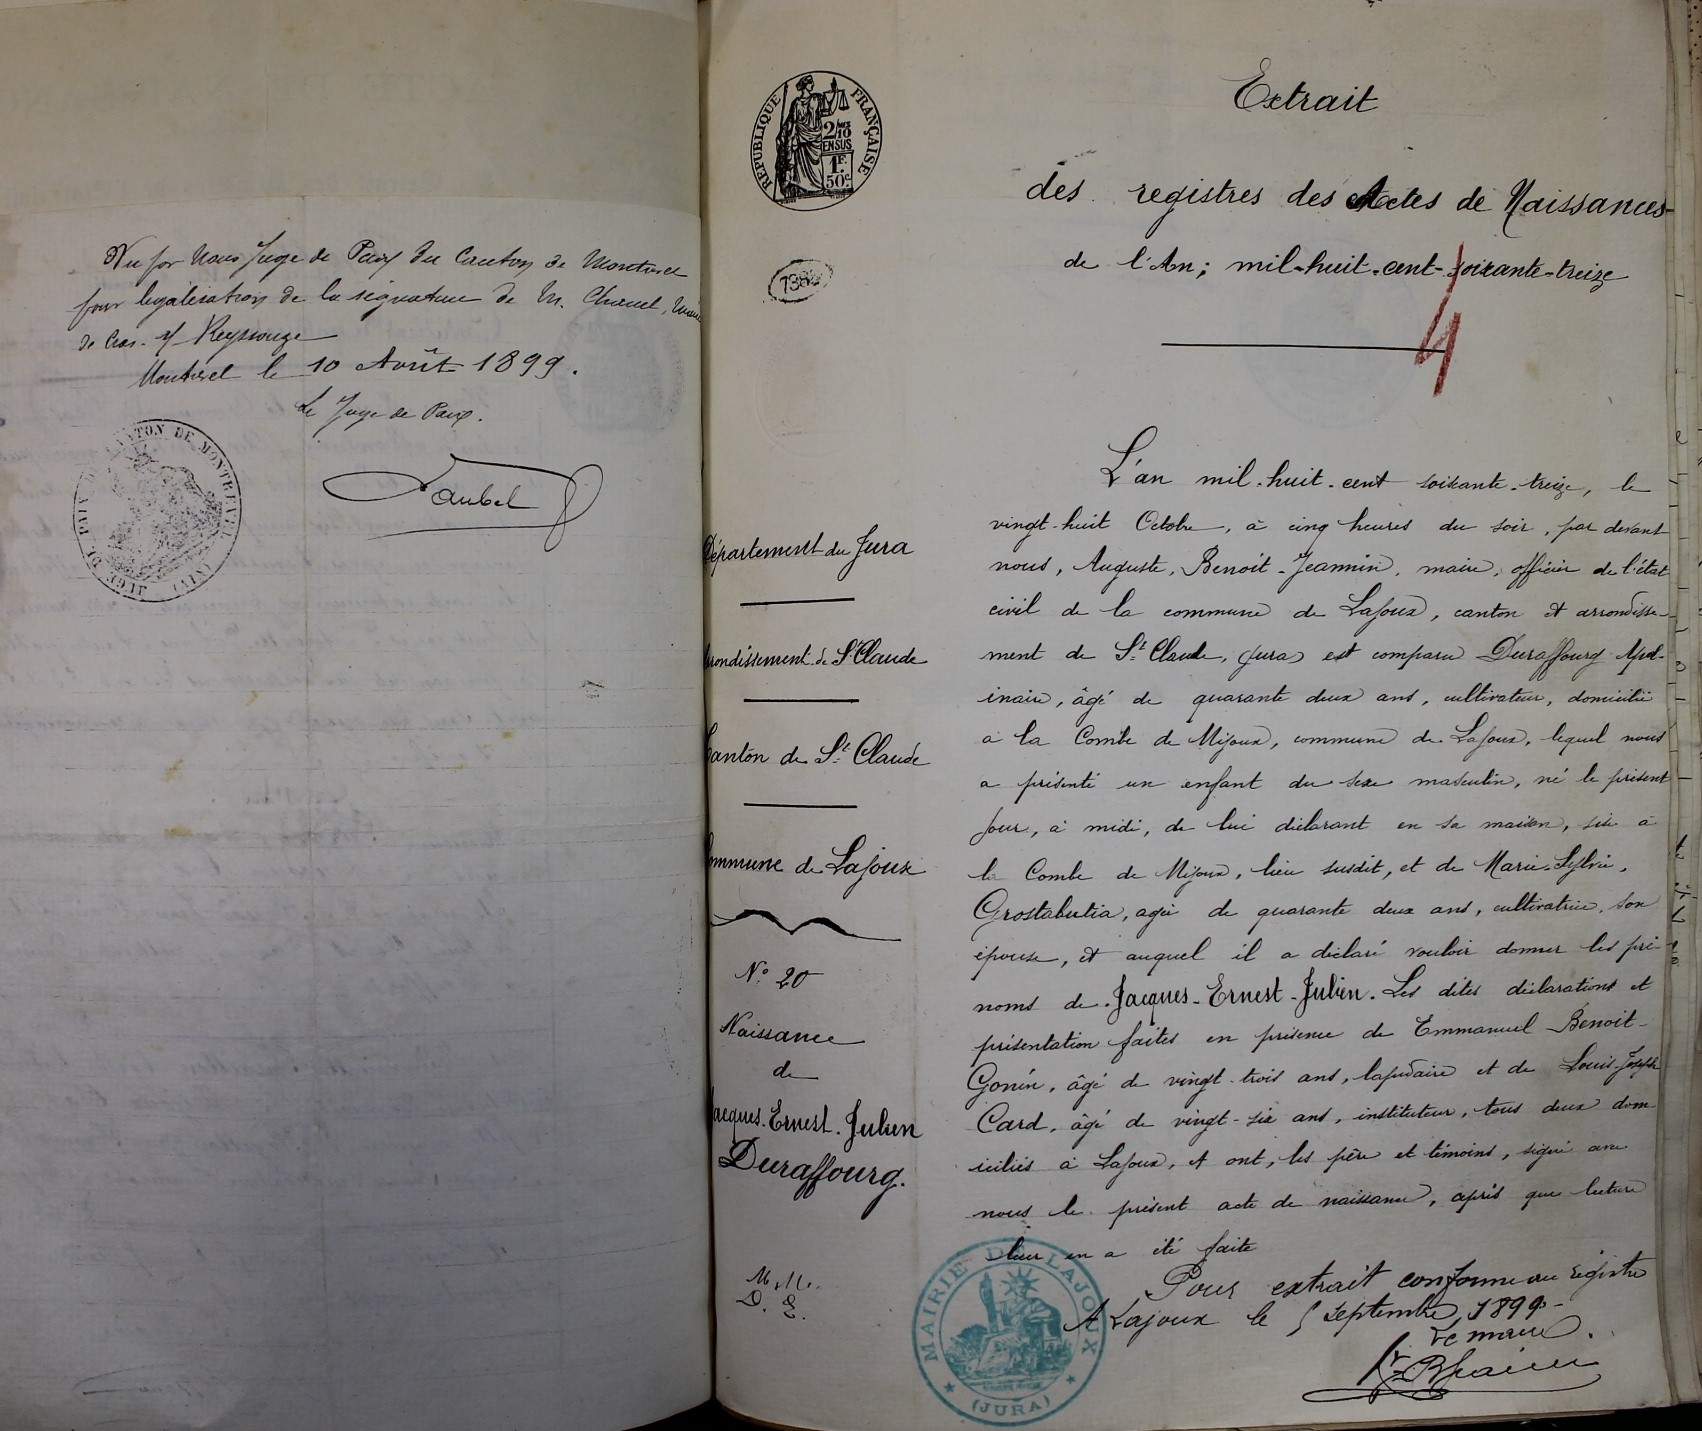 Vu par Nous Juge de Paix du Canton de Montrevel
pour legalisation de la signature de M. Chanel, Maire
de Cras-s/-Reyssouze
Montrevel le 10 Août 1899.
Le Juge de Paix.
JUGE DE PAIX DU CANTON DE MONTREVEL (AIN)
REPUBLIQUE FRANÇAISE
2/10
EN SUS
1F.
50c.
Extrait
des registres des Actes de Naissances
de l'An; mil-huit-cent-soixante-treize
4
Département du Jura
Arrondissement de St Claude
Canton de St Claude
Commune de Lajoux
No 20
Naissance
de
Jacques-Ernest-Julien
Duraffourg.
L'an mil-huit-cent soixante-treize, le
vingt-huit Octobre, à cinq heures du soir, par devant
nous, Auguste, Benoit-Jeannin, maire, officier de l'état
civil de la commune de Lajoux, canton et arrondisse-
ment de St Claude, (Jura) est comparu Duraffourg Apol-
inaire, âgé de quarante deux ans, cultivateur, domicilié
à la Combe de Mijoux, commune de Lajoux, lequel nous
a présenté un enfant du sexe masculin, né le présent
jour, à midi, de lui déclarant en sa maison, sise à
la Combe de Mijoux, lieu susdit, et de Marie-Sylvie,
Grostabutia, agée de quarante deux ans, cultivatrice, son
épouse, et auquel il a déclaré vouloir donner les pré-
noms de Jacques-Ernest-Julien. Les dites déclarations et
présentation faites en présence de Emmanuel Benoit-
Gonin, âgé de vingt-trois ans, lapidaire et de Louis-Joseph
Card, âgé de vingt-six ans, instituteur, tous deux dom
iciliés à Lajoux, et ont, les père et témoins, signé avec
nous le présent acte de naissance, après que lecture
leur en a été faite
Pour extrait conforme au régistre
A Lajoux le 5 septembre, 1899-
Le maire.
MAIRIE DE LAJOUX
(JURA)